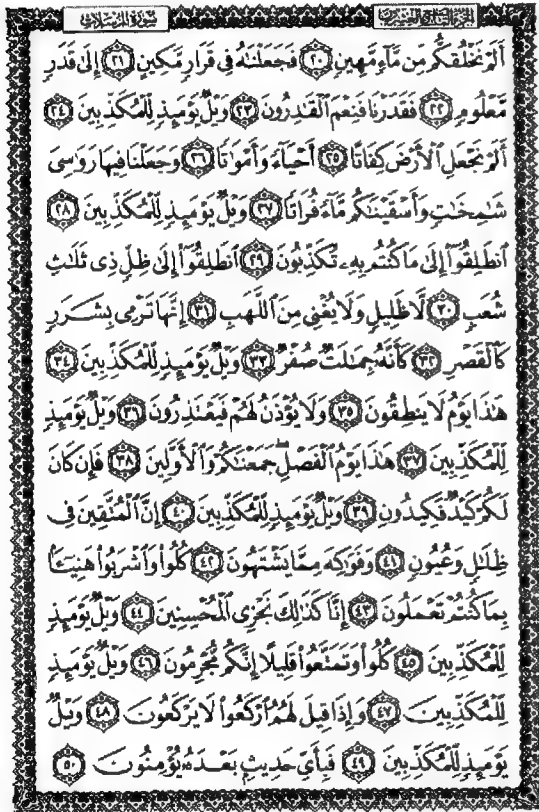 الجزء التاسع والعشرون
سورة المرسلات
أَلَمْ نَخْلُقكُّم مِّن مَّآءٍ مَّهِينٍ ٢٠ فَجَعَلْنَٰهُ فِى قَرَارٍ مَّكِينٍ ٢١ إِلَىٰ قَدَرٍ
مَّعْلُومٍ ٢٢ فَقَدَرْنَا فَنِعْمَ ٱلْقَٰدِرُونَ ٢٣ وَيْلٌ يَوْمَئِذٍ لِّلْمُكَذِّبِينَ ٢٤
أَلَمْ نَجْعَلِ ٱلْأَرْضَ كِفَاتًا ٢٥ أَحْيَآءً وَأَمْوَٰتًا ٢٦ وَجَعَلْنَا فِيهَا رَوَٰسِىَ
شَٰمِخَٰتٍ وَأَسْقَيْنَٰكُم مَّآءً فُرَاتًا ٢٧ وَيْلٌ يَوْمَئِذٍ لِّلْمُكَذِّبِينَ ٢٨
ٱنطَلِقُوٓا۟ إِلَىٰ مَا كُنتُم بِهِۦ تُكَذِّبُونَ ٢٩ ٱنطَلِقُوٓا۟ إِلَىٰ ظِلٍّ ذِى ثَلَٰثِ
شُعَبٍ ٣٠ لَّا ظَلِيلٍ وَلَا يُغْنِى مِنَ ٱللَّهَبِ ٣١ إِنَّهَا تَرْمِى بِشَرَرٍ
كَٱلْقَصْرِ ٣٢ كَأَنَّهُۥ جِمَٰلَتٌ صُفْرٌ ٣٣ وَيْلٌ يَوْمَئِذٍ لِّلْمُكَذِّبِينَ ٣٤
هَٰذَا يَوْمُ لَا يَنطِقُونَ ٣٥ وَلَا يُؤْذَنُ لَهُمْ فَيَعْتَذِرُونَ ٣٦ وَيْلٌ يَوْمَئِذٍ
لِّلْمُكَذِّبِينَ ٣٧ هَٰذَا يَوْمُ ٱلْفَصْلِ ۖ جَمَعْنَٰكُمْ وَٱلْأَوَّلِينَ ٣٨ فَإِن كَانَ
لَكُمْ كَيْدٌ فَكِيدُونِ ٣٩ وَيْلٌ يَوْمَئِذٍ لِّلْمُكَذِّبِينَ ٤٠ إِنَّ ٱلْمُتَّقِينَ فِى
ظِلَٰلٍ وَعُيُونٍ ٤١ وَفَوَٰكِهَ مِمَّا يَشْتَهُونَ ٤٢ كُلُوا۟ وَٱشْرَبُوا۟ هَنِيٓـًٔۢا
بِمَا كُنتُمْ تَعْمَلُونَ ٤٣ إِنَّا كَذَٰلِكَ نَجْزِى ٱلْمُحْسِنِينَ ٤٤ وَيْلٌ يَوْمَئِذٍ
لِّلْمُكَذِّبِينَ ٤٥ كُلُوا۟ وَتَمَتَّعُوا۟ قَلِيلًا إِنَّكُم مُّجْرِمُونَ ٤٦ وَيْلٌ يَوْمَئِذٍ
لِّلْمُكَذِّبِينَ ٤٧ وَإِذَا قِيلَ لَهُمُ ٱرْكَعُوا۟ لَا يَرْكَعُونَ ٤٨ وَيْلٌ
يَوْمَئِذٍ لِّلْمُكَذِّبِينَ ٤٩ فَبِأَىِّ حَدِيثٍۭ بَعْدَهُۥ يُؤْمِنُونَ ٥٠